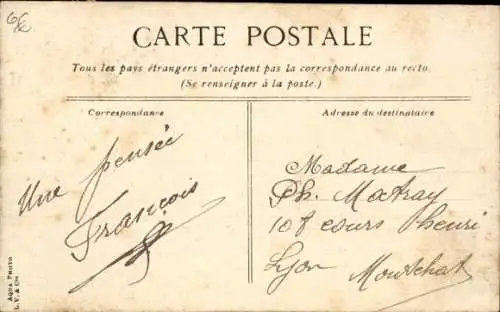 6€
CARTE POSTALE
Tous les pays étrangers n'acceptent pas la correspondance au recto.
(Se renseigner à la poste.)
Correspondance
Adresse du destinataire
Une pensée
François
Madame
Ph. Matray
108 cours henri
Lyon Montchat
AQUA PHOTO
L. V. & Cie